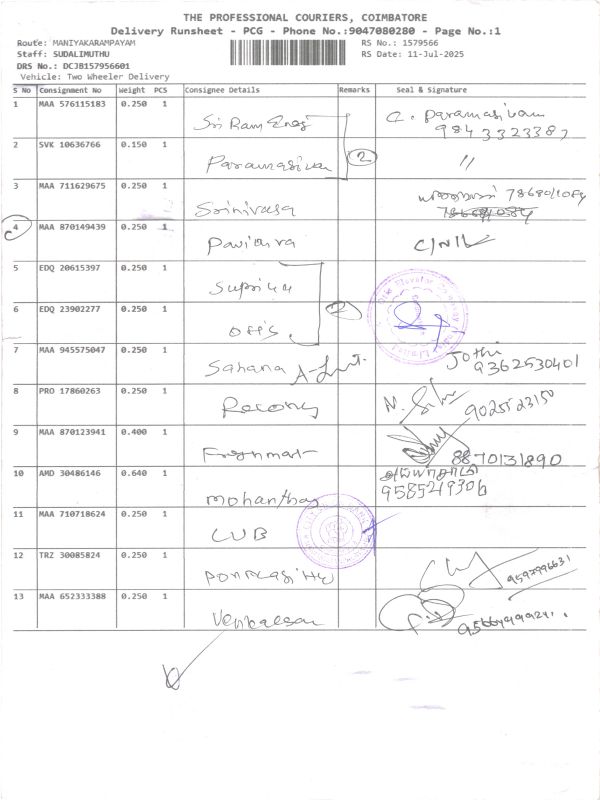 THE PROFESSIONAL COURIERS, COIMBATORE
Delivery Runsheet - PCG - Phone No.:9047080280 - Page No.:1
Route: MANIYAKARAMPAYAM RS No.: 1579566
Staff: SUDALIMUTHU RS Date: 11-Jul-2025
DRS No.: DCJB157956601
Vehicle: Two Wheeler Delivery
S No Consignment No Weight PCS Consignee Details Remarks Seal & Signature
1 MAA 576115183 0.250 1 Sri Ram Eneg C. Paramasivam
9843323387
2 SVK 10636766 0.150 1 Paramasivan 2 "
3 MAA 711629675 0.250 1 Srinivasa
4 MAA 870149439 0.250 1 Pavithra
5 EDQ 20615397 0.250 1 Supriya
6 EDQ 23902277 0.250 1 Otis 2
7 MAA 945575047 0.250 1 Sahana Jothi
9362530401
8 PRO 17860263 0.250 1
9 MAA 870123941 0.400 1 Freshmart 8870131890
10 AMD 30486146 0.640 1 Mohanthas
9585219306
11 MAA 710718624 0.250 1 CUB
12 TRZ 30085824 0.250 1 9597996631
13 MAA 652333388 0.250 1 Venkatesan